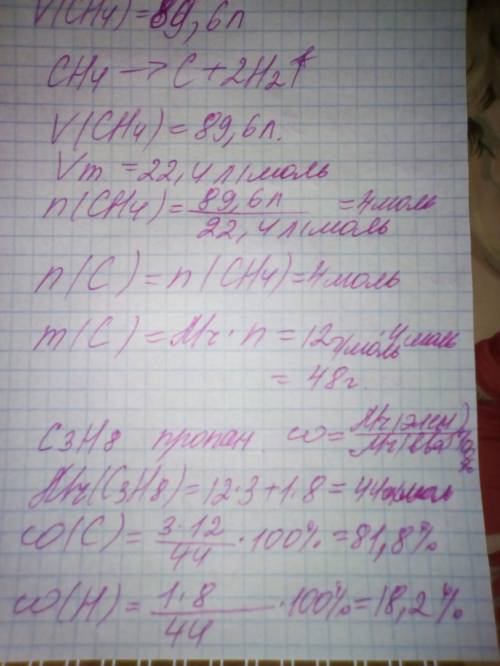 V(CH4)=89,6л
CH4 → C + 2H2↑
V(CH4) = 89,6л.
Vm = 22,4 л/моль
n(CH4) = 89,6л / 22,4 л/моль = 4моль
n(C) = n(CH4) = 4моль
m(C) = Mr · n = 12г/моль · 4моль
= 48г.
C3H8 пропан ω =
Mr(C3H8) = 12·3+1·8 = 44
ω(C) = 3·12 / 44 · 100% = 81,8%
ω(H) = 1·8 / 44 · 100% = 18,2%